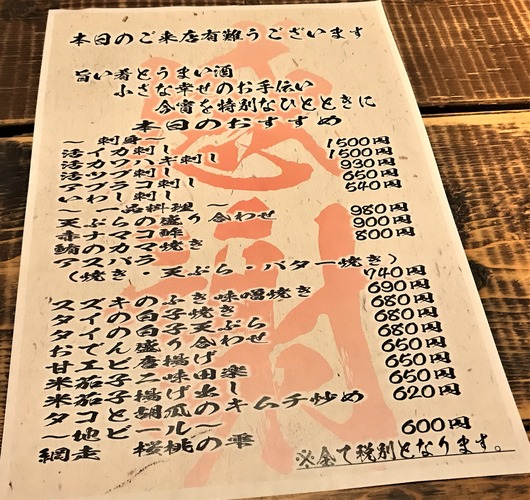 本日のご来店有難うございます
旨い肴とうまい酒
小さな幸せのお手伝い
今宵を特別なひとときに
本日のおすすめ
～ 刺身～
活イカ刺し 1500円
活カワハギ刺し 1500円
活ツブ刺し 930円
アブラコ刺し 650円
いわし刺し 540円
～一品料理～
天ぷらの盛り合わせ 980円
赤ナマコ酢 900円
鮪のカマ焼き 800円
アスパラ
(焼き・天ぷら・バター焼き)
740円
スズキのふき味噌焼き 690円
タイの白子焼き 680円
タイの白子天ぷら 680円
おでん盛り合わせ 680円
甘エビ唐揚げ 650円
米茄子二味田楽 650円
米茄子揚げ出し 650円
タコと胡瓜のキムチ炒め 620円
～地ビール～
網走 桜桃の雫 600円
※全て税別となります。